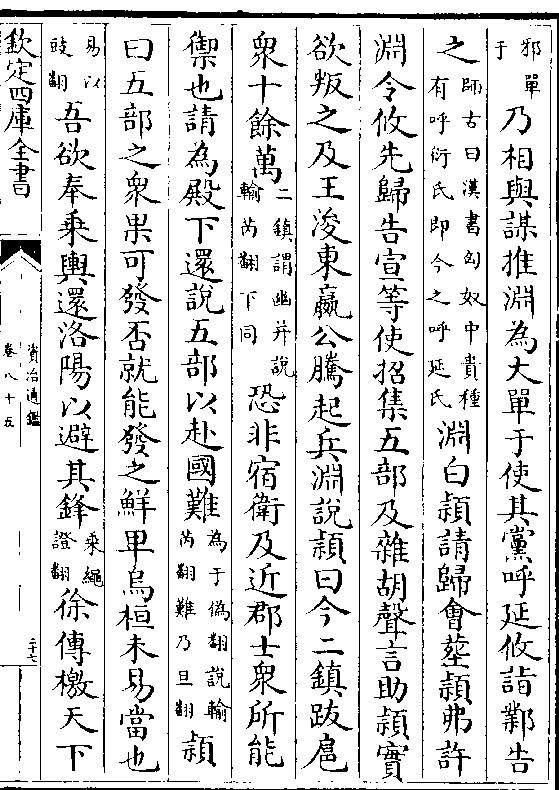 邪單
于
乃相與謀推淵為大單于使其黨呼延攸詣鄴告
之
師古曰漢書匈奴中貴種
有呼衍氏即今之呼延氏
淵白頴請歸會塟頴弗許
淵令攸先歸告宣等使招集五部及雜胡聲言助頴實
欲叛之及王浚東嬴公騰起兵淵說頴曰今二鎮跋扈
衆十餘萬
二鎮謂幽并說
輸芮翻下同
恐非宿衛及近郡士衆所能
禦也請為殿下還說五部以赴國難
為于偽翻說輸
芮翻難乃旦翻
頴
曰五部之衆果可發否就能發之鮮卑烏桓未易當也
易以
豉翻
吾欲奉乘輿還洛陽以避其鋒
乘繩
證翻
徐傳檄天下
欽定四庫全書
資治通鑑
卷八十五
二十七